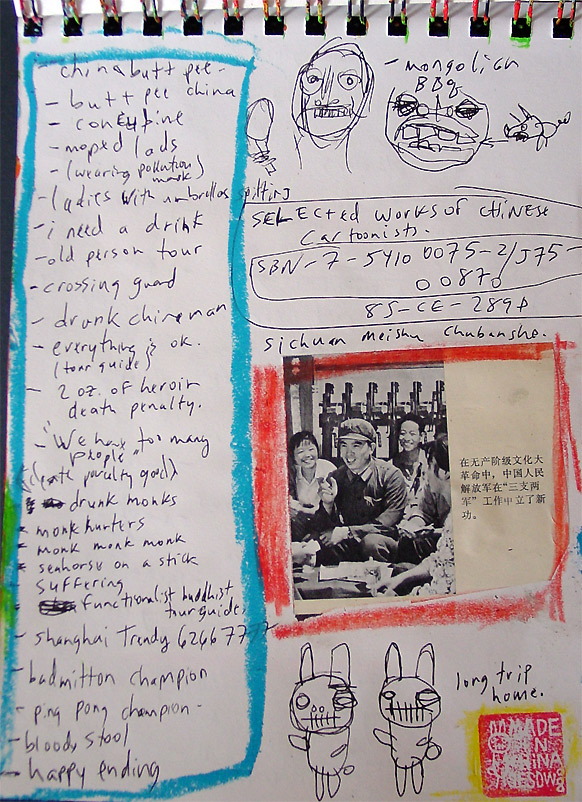 - china butt pee -
- butt pee china
- concubine
- moped lads
- (wearing pollution mask)
- ladies with umbrellas spitting
- i need a drink
- old person tour
- crossing guard
- drunk chineman
- everything is ok.
(tour guide)
- 2 oz. of heroin
death penalty.
- "We have too many
people"
(death penalty good)
drunk monks
- monk hunters
- monk monk monk
- seahorse on a stick
suffering
- functionalist buddhist
tour guides
- shanghai Trendy 62667777
- badmitton champion
- ping pong champion -
- bloody stool
- happy ending
- mongolian
BBq
SELECTED WORKS OF CHINESE
Cartoonists.
ISBN-7-5410 0075-2/J75-
00870
85-CE-289P
Sichuan Meishu Chubanshe.
在无产阶级文化大
革命中，中国人民
解放军在“三支两
军”工作中立了新
功。
long trip
home.
MADE
IN
CHINA